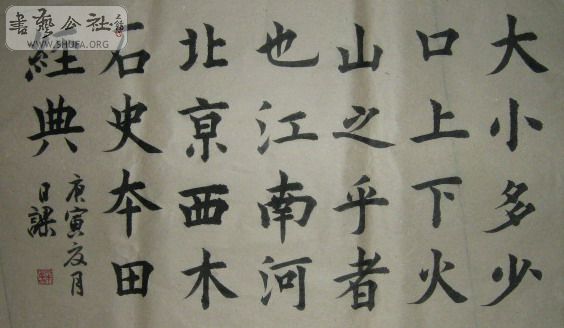 大小多少
口上下火
山之乎者
也江南河
北亰西木
石史夲田
經典
庚寅夏月
日課
書藝公社
WWW.SHUFA.ORG